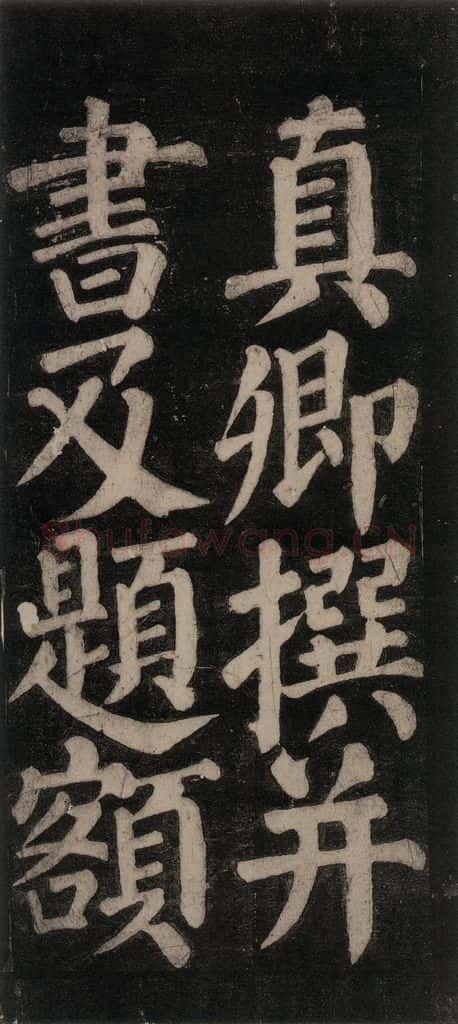 真卿撰并
書及題額
Shufawang.cn